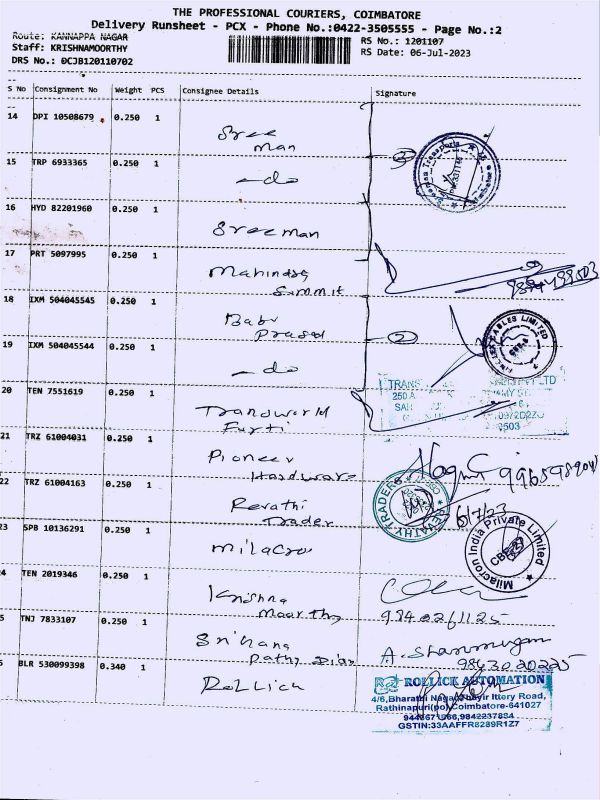 THE PROFESSIONAL COURIERS, COIMBATORE
Delivery Runsheet - PCX - Phone No.:0422-3505555 - Page No.:2
Route: KANNAPPA NAGAR
RS No.: 1201107
Staff: KRISHNAMOORTHY
RS Date: 06-Jul-2023
DRS No.: DCJB120110702
S No Consignment No Weight PCS Consignee Details Signature
14 DPI 10508679 0.250 1 Sree
man
15 TRP 6933365 0.250 1 - do
16 HYD 82201960 0.250 1 Sreeman
17 PRT 5097995 0.250 1 Mahindra
Summit
18 IXM 504045545 0.250 1 Babu
Prasad
2
19 IXM 504045544 0.250 1 - do
CABLES LIMITED
TRANS
250 A
20 TEN 7551619 0.250 1 Transworld
Furti
21 TRZ 61004031 0.250 1 Pioneer
Hardware
22 TRZ 61004163 0.250 1 Revathi
Trader
REVATHY TRADERS
6/7/23
23 SPB 10136291 0.250 1 milacro
Milacron India Private Limited
24 TEN 2019346 0.250 1 Krishna
Moorthy
98402 61125
25 TNJ 7833107 0.250 1 Srihana
Pathy Dias
A. Shanmugam
9863020225
26 BLR 530099398 0.340 1 Rollick
ROLLICK AUTOMATION
4/6,Bharathi Nagar, Ittery Road,
Rathinapuri(po),Coimbatore-641027
9842237884
GSTIN:33AAFFR8289R1Z7